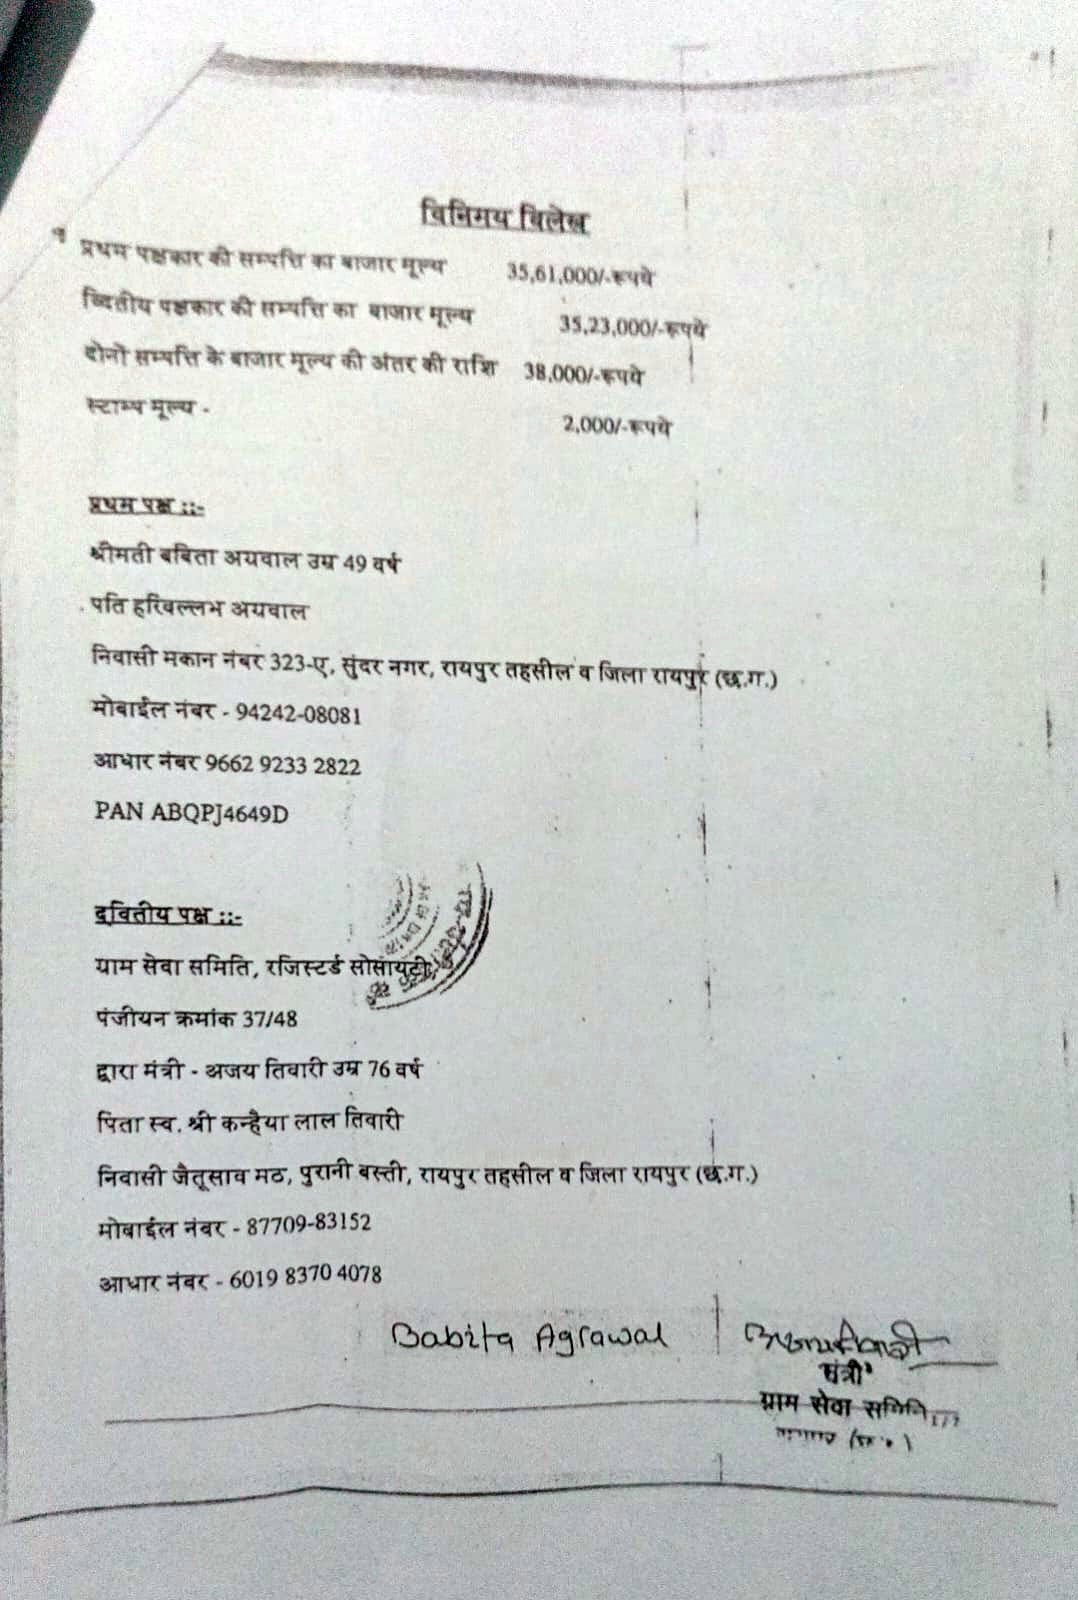 विनिमय विलेख
प्रथम पक्षकार की सम्पत्ति का बाजार मूल्य 35,61,000/-रूपये
व्दितीय पक्षकार की सम्पत्ति का बाजार मूल्य 35,23,000/-रूपये
दोनो सम्पत्ति के बाजार मूल्य की अंतर की राशि 38,000/-रूपये
स्टाम्प मूल्य - 2,000/-रूपये
प्रथम पक्ष ::-
श्रीमती बबिता अग्रवाल उम्र 49 वर्ष
पति हरिवल्लभ अग्रवाल
निवासी मकान नंबर 323-ए, सुंदर नगर, रायपुर तहसील व जिला रायपुर (छ.ग.)
मोबाईल नंबर - 94242-08081
आधार नंबर 9662 9233 2822
PAN ABQPJ4649D
द्वितीय पक्ष ::-
ग्राम सेवा समिति, रजिस्टर्ड सोसायटी,
पंजीयन क्रमांक 37/48
द्वारा मंत्री - अजय तिवारी उम्र 76 वर्ष
पिता स्व. श्री कन्हैया लाल तिवारी
निवासी जैतूसाव मठ, पुरानी बस्ती, रायपुर तहसील व जिला रायपुर (छ.ग.)
मोबाईल नंबर - 87709-83152
आधार नंबर - 6019 8370 4078
Babita Agrawal
मंत्री
ग्राम सेवा समिति